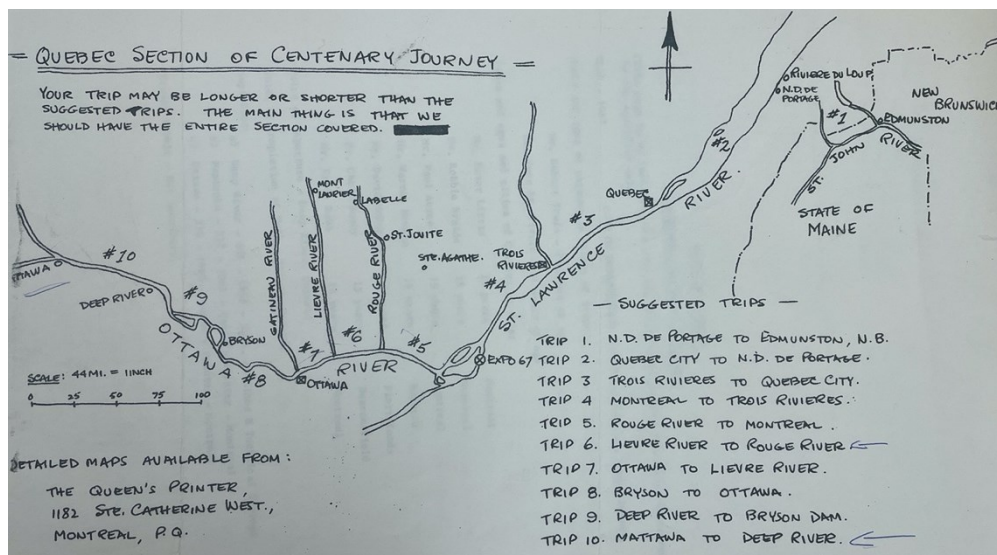 = QUEBEC SECTION OF CENTENARY JOURNEY =
YOUR TRIP MAY BE LONGER OR SHORTER THAN THE
SUGGESTED TRIPS. THE MAIN THING IS THAT WE
SHOULD HAVE THE ENTIRE SECTION COVERED.
RIVIERE DU LOUP
N.D. DE
PORTAGE
NEW
BRUNSWICK
#1
EDMUNSTON
ST. JOHN RIVER
STATE OF
MAINE
#2
QUEBEC
#3
ST. LAWRENCE RIVER.
TROIS
RIVIERES
#4
MONT
LAURIER
LABELLE
ST. JOVITE
STE. AGATHE.
GATINEAU RIVER
LIEVRE RIVER
ROUGE RIVER
#10
TTAWA
DEEP RIVER
#9
BRYSON
OTTAWA RIVER
#8
#7
#6
#5
OTTAWA
EXPO 67
SCALE: 44 MI. = 1 INCH
0 25 50 75 100
DETAILED MAPS AVAILABLE FROM:
THE QUEEN'S PRINTER,
1182 STE. CATHERINE WEST.,
MONTREAL, P.Q.
— SUGGESTED TRIPS —
TRIP 1. N.D. DE PORTAGE TO EDMUNSTON, N.B.
TRIP 2. QUEBEC CITY TO N.D. DE PORTAGE.
TRIP 3 TROIS RIVIERES TO QUEBEC CITY.
TRIP 4 MONTREAL TO TROIS RIVIERES.
TRIP 5. ROUGE RIVER TO MONTREAL.
TRIP 6. LIEVRE RIVER TO ROUGE RIVER
TRIP 7. OTTAWA TO LIEVRE RIVER.
TRIP 8. BRYSON TO OTTAWA.
TRIP 9. DEEP RIVER TO BRYSON DAM.
TRIP 10. MATTAWA TO DEEP RIVER.